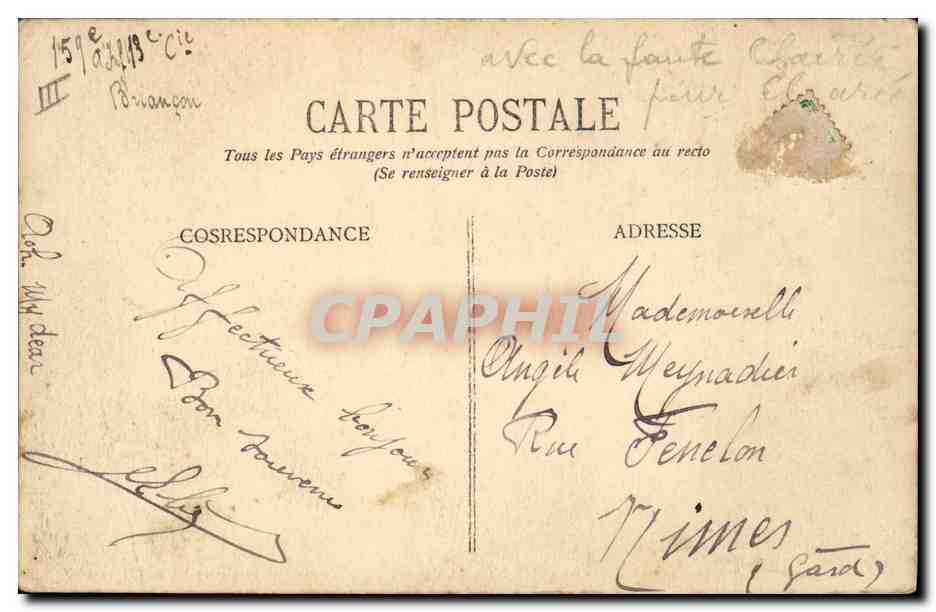 159e d'Inf 13e Cie
III
Briançon
avec la faute Clairée
pour Clarée
CARTE POSTALE
Tous les Pays étrangers n'acceptent pas la Correspondance au recto
(Se renseigner à la Poste)
COSRESPONDANCE
ADRESSE
Aoh. My dear
Affectueux bonjour
Bon souvenir
Mademoiselle
Angèle Meynadier
Rue Fenelon
Nimes
(Gard)
CPAPHIL